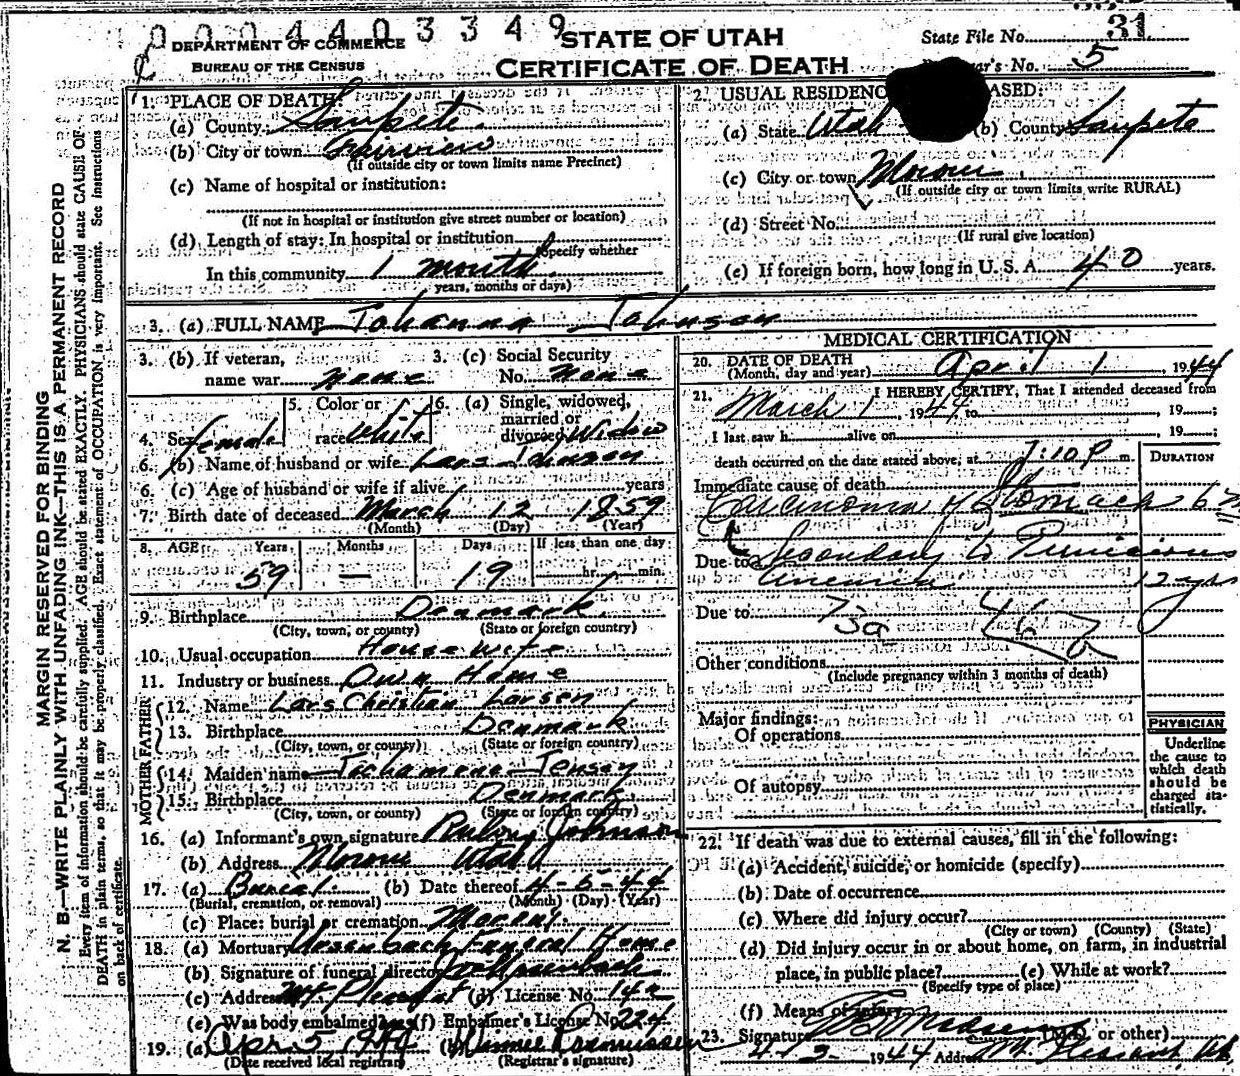 0 0 0 4 4 0 3 3 4 9
DEPARTMENT OF COMMERCE
BUREAU OF THE CENSUS
STATE OF UTAH
CERTIFICATE OF DEATH
State File No. 31
's No. 5
MARGIN RESERVED FOR BINDING
N. B.—WRITE PLAINLY WITH UNFADING INK—THIS IS A PERMANENT RECORD
Every item of information should be carefully supplied. AGE should be stated EXACTLY. PHYSICIANS should state CAUSE OF
DEATH in plain terms, so that it may be properly classified. Exact statement of OCCUPATION is very important. See instructions
on back of certificate.
1. PLACE OF DEATH:
(a) County Sanpete
(b) City or town Fairview
(If outside city or town limits name Precinct)
(c) Name of hospital or institution:
(If not in hospital or institution give street number or location)
(d) Length of stay: In hospital or institution
(Specify whether
In this community 1 month
years, months or days)
2. USUAL RESIDENC ASED:
(a) State Utah (b) County Sanpete
(c) City or town Moroni
(If outside city or town limits, write RURAL)
(d) Street No.
(If rural give location)
(e) If foreign born, how long in U. S. A. 40 years.
3. (a) FULL NAME Johanna Johnson
3. (b) If veteran, name war none
3. (c) Social Security No. None
4. Sex female
5. Color or race white
6. (a) Single, widowed, married or divorced Widow
6. (b) Name of husband or wife Lars Johnson
6. (c) Age of husband or wife if alive years
7. Birth date of deceased March 12 1859
(Month) (Day) (Year)
8. AGE Years Months Days If less than one day
59 — 19 hr. min.
9. Birthplace Denmark
(City, town, or county) (State or foreign country)
10. Usual occupation House wife
11. Industry or business Own Home
FATHER
12. Name Lars Christian Larsen
13. Birthplace Denmark
(City, town, or county) (State or foreign country)
MOTHER
14. Maiden name Jensen
15. Birthplace Denmark
(City, town, or county) (State or foreign country)
16. (a) Informant's own signature Johnson
(b) Address Moroni Utah
17. (a) Burial (b) Date thereof 4-5-44
(Burial, cremation, or removal) (Month) (Day) (Year)
(c) Place: burial or cremation Moroni
18. (a) Mortuary Ursenbach Funeral Home
(b) Signature of funeral director Ursenbach
(c) Address Mt. Pleasant (d) License No. 142
(e) Was body embalmed? (f) Embalmer's License No. 224
19. (a) Apr. 5, 1944 (b) Rasmussen
(Date received local registrar) (Registrar's signature)
MEDICAL CERTIFICATION
20. DATE OF DEATH April 1 1944
(Month, day and year)
21. I HEREBY CERTIFY, That I attended deceased from
March 1, 1944 to , 19 ;
I last saw h alive on , 19 ;
death occurred on the date stated above, at 7:10 P m. DURATION
Immediate cause of death
Carcinoma of Stomach 6
Due to Secondary to Pernicious
Anemia 12 yrs
Due to 73a 46b
Other conditions
(Include pregnancy within 3 months of death)
Major findings:
Of operations
Of autopsy
PHYSICIAN
Underline
the cause to
which death
should be
charged sta-
tistically.
22. If death was due to external causes, fill in the following:
(a) Accident, suicide, or homicide (specify)
(b) Date of occurrence
(c) Where did injury occur?
(City or town) (County) (State)
(d) Did injury occur in or about home, on farm, in industrial
place, in public place? (e) While at work?
(Specify type of place)
(f) Means of injury
23. Signature Madsen (M.D. or other)
4-3-1944 Address Mt Pleasant, Ut.